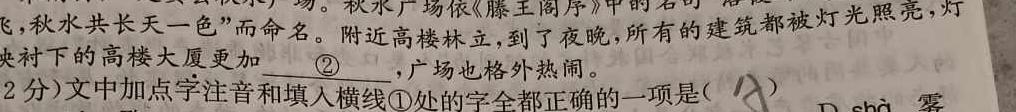 秋水广场依《滕王阁序》中的名句
飞,秋水共长天一色”而命名。附近高楼林立,到了夜晚,所有的建筑都被灯光照亮,灯
映衬下的高楼大厦更加②,广场也格外热闹。
2分)文中加点字注音和填入横线①处的字全都正确的一项是( )
D. shà 雾